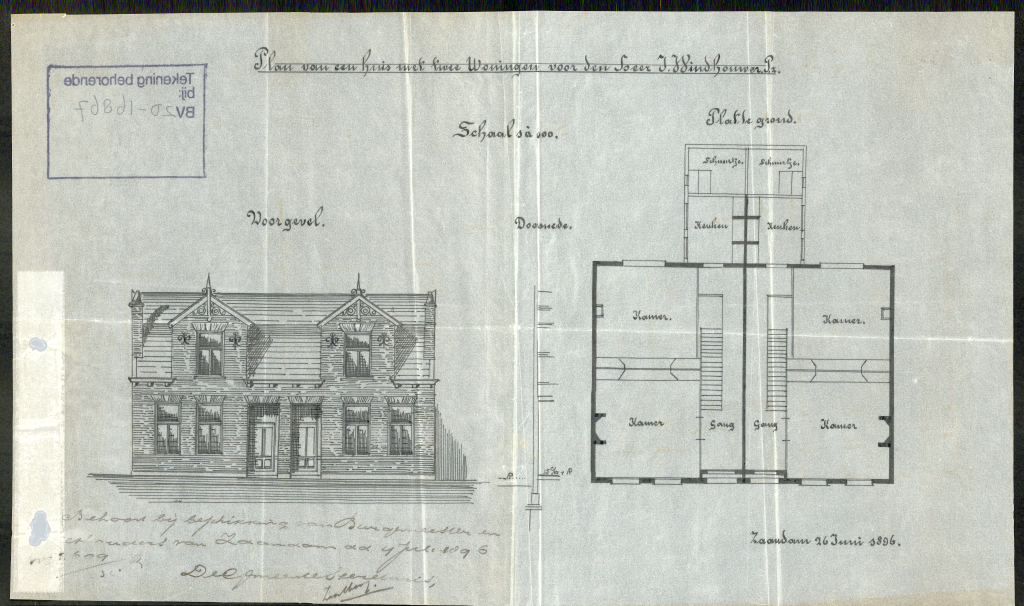 Plan van een huis met twee Woningen voor den Heer J. Windhouwer. Pz.
Tekening behorende
bij:
BV 20-16867
Schaal 1 à 100.
Platte grond.
Schuurtje.
Schuurtje.
Voorgevel.
Doorsnede.
Keuken
Keuken
Kamer.
Kamer.
Kamer
Gang
Gang
Kamer
Behoort bij beschikking van Burgemeester en
van Zaandam dd 4 Juli 1896
De Gemeentesecretaris,
Zaandam 26 Juni 1896.